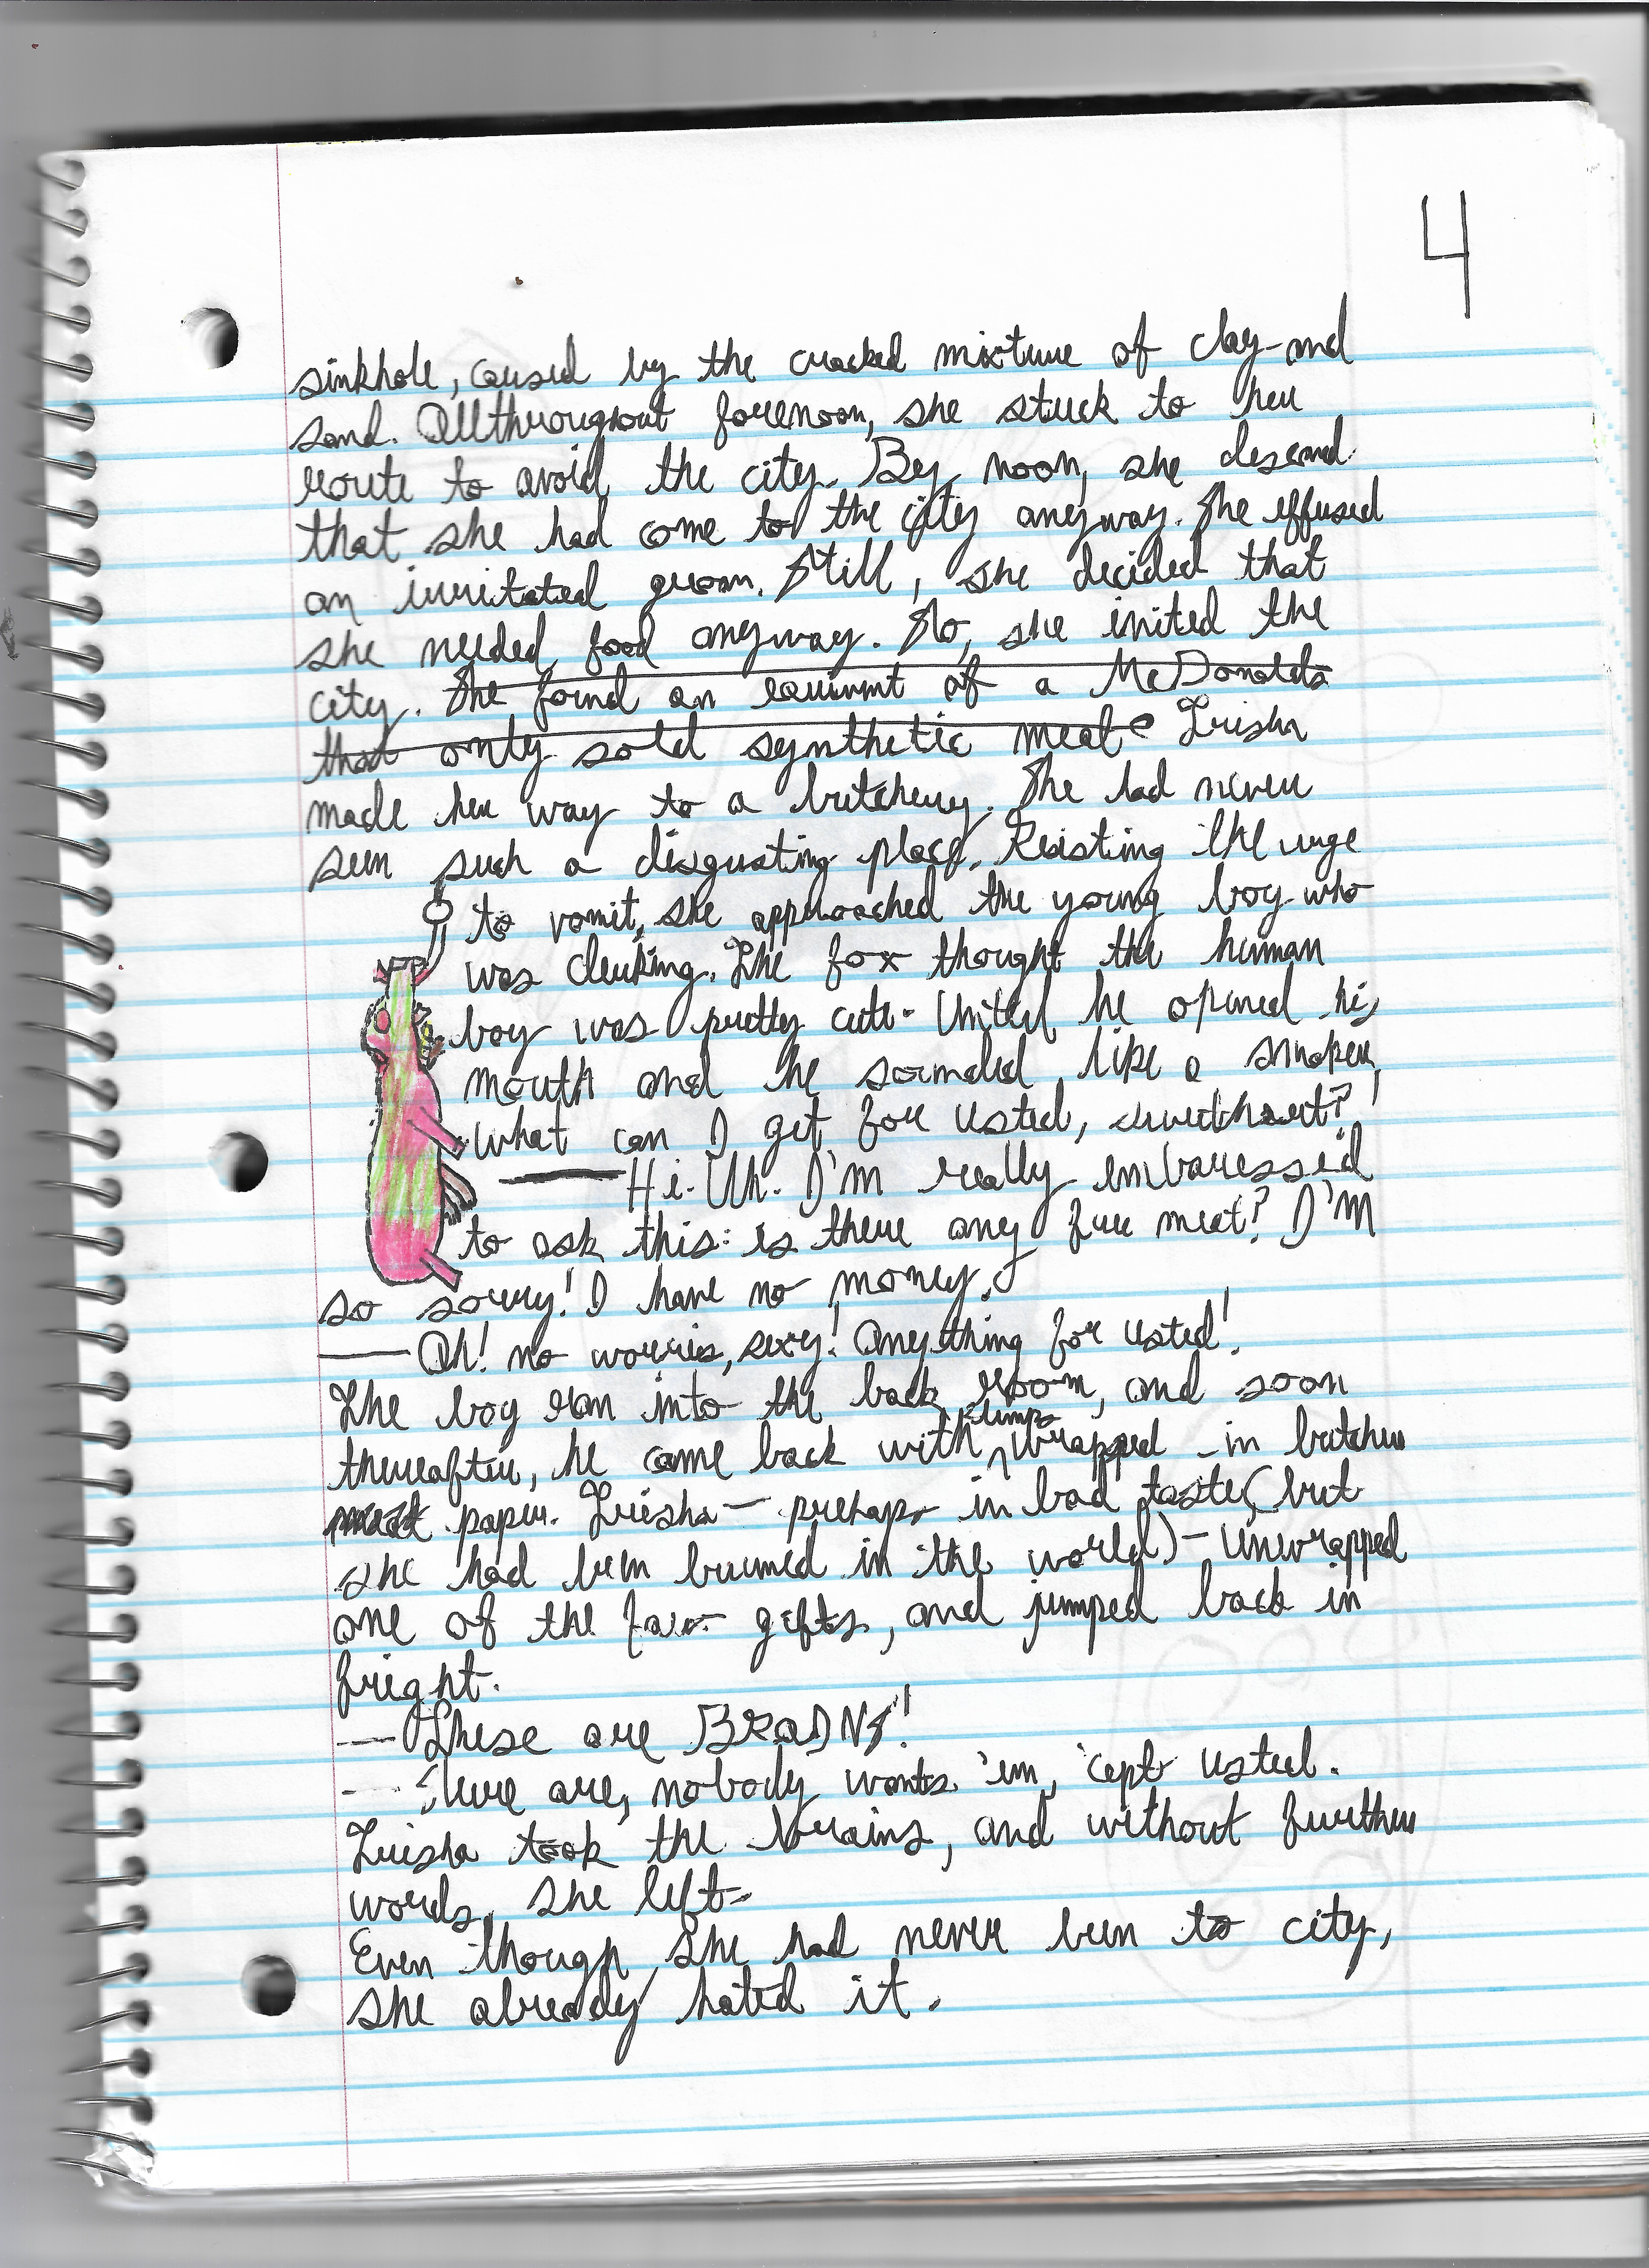 4
sinkhole, caused by the cracked mixture of clay and
sand. Allthroughout forenoon, she stuck to her
route to avoid the city. By noon, she
that she had come to the city anyway. She effused
an irritated groan. Still, she decided that
she needed food anyway. So, she the
city. She found an of a McDonalds
that only sold synthetic meat Trisha
made her way to a butchery. She had never
seen such a disgusting place. Resisting the urge
to vomit, she approached the young boy who
was clerking. The fox thought the human
boy was pretty cute. Until he opened his
mouth and he sounded like a smoker,
what can I get for usted, sweetheart?
— Hi. Uh. I'm really embaressed
to ask this: is there any free meat? I'm
so sorry! I have no money.
— Oh! no worries, sexy! anything for usted!
The boy ran into the back room, and soon
thereafter, he came back with lumps wrapped in butcher
meat paper. Trisha — perhaps in bad taste (but
she had been burned in the world) – unwrapped
one of the gifts, and jumped back in
fright.
— These are BRAINS!
— Sure are, nobody wants 'em, 'cept usted.
Trisha took the brains, and without further
words, she left.
Even though she had never been to city,
she already hated it.